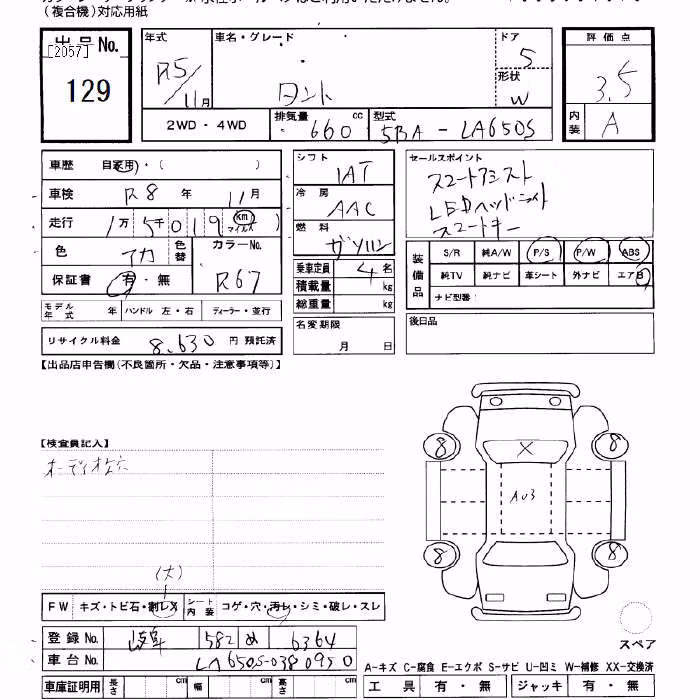 (複合機)対応用紙
出品No.
[2057]
129
年式
R5/11月
車名・グレード
タント
ドア
5
形状
W
評価点
3.5
内装
A
2WD・4WD
排気量
660
cc
型式
5BA-LA650S
車歴
自家用・( )
車検
R8年11月
走行
1万5千019
km
マイル
色
アカ
色替
カラーNo.
R67
保証書
有・無
シフト
IAT
冷房
AAC
燃料
ガソリン
乗車定員
4名
積載量
kg
総重量
kg
セールスポイント
スマートアシスト
LEDヘッドライト
スマートキー
装備品
S/R
純A/W
P/S
P/W
ABS
純TV
純ナビ
革シート
外ナビ
エアB
ナビ型番:
モデル年式
年
ハンドル
左・右
ディーラー・並行
リサイクル料金
8,630円
預託済
名変期限
月 日
後日品
【出品店申告欄(不良箇所・欠品・注意事項等)】
【検査員記入】
オーディオ
8
8
X
A03
8
8
(大)
FW
キズ・トビ石・割レX
シート内装
コゲ・穴・汚レ・シミ・破レ・スレ
登録No.
岐阜
582
め
6364
車台No.
LA650S-0380950
スペア
A-キズ C-腐食 E-エクボ S-サビ U-凹ミ W-補修 XX-交換済
車庫証明用
長さ
cm
幅
cm
高さ
cm
工具
有・無
ジャッキ
有・無